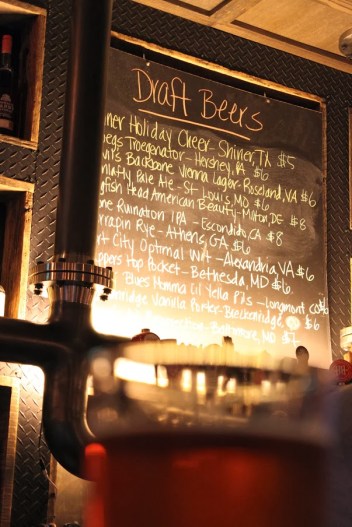 Draft Beers
iner Holiday Cheer - Shiner, TX $5
egs Troegenator - Hershey, PA $6
vil's Backbone Vienna Lager - Roseland, VA $6
nlaffly Pale Ale - St Louis, MO $6
gfish Head American Beauty - Milton DE $8
one Ruination IPA - Escondido, CA $8
rrapin Rye - Athens, GA $6
rt City Optimal Wit - Alexandria, VA $6
ppers Top Pocket - Bethesda, MD $6
Blues Mamma Lil Yella Pils - Longmont CO $6
nridge Vanilla Porter - Breckenridge, $6
Baltimore, MD $7